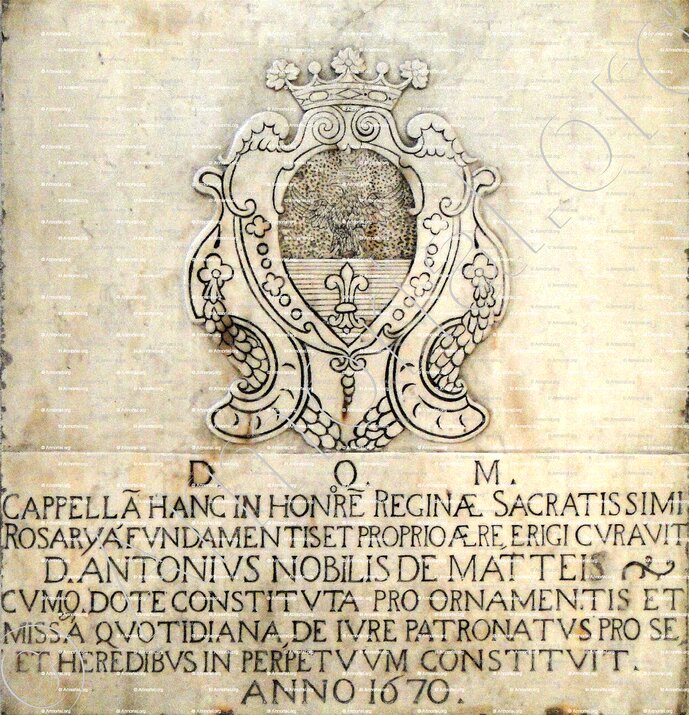 D. O. M.
CAPPELLÃ HANC IN HONRẼ REGINÆ SACRATISSIMI
ROSARY, A FVNDAMENTIS ET PROPRIO ÆRE ERIGI CVRAVIT
D. ANTONIVS NOBILIS DE MATTEIS
CVMQ. DOTE CONSTITVTA PRO ORNAMENTIS ET
MISSA QVOTIDIANA DE IVRE PATRONATVS PRO SE,
ET HEREDIBVS IN PERPETVVM CONSTITVIT.
ANNO 1670.